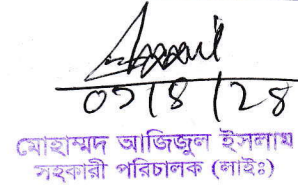 ০৭/৪/২৪
মোহাম্মদ আজিজুল ইসলাম
সহকারী পরিচালক (লাইঃ)